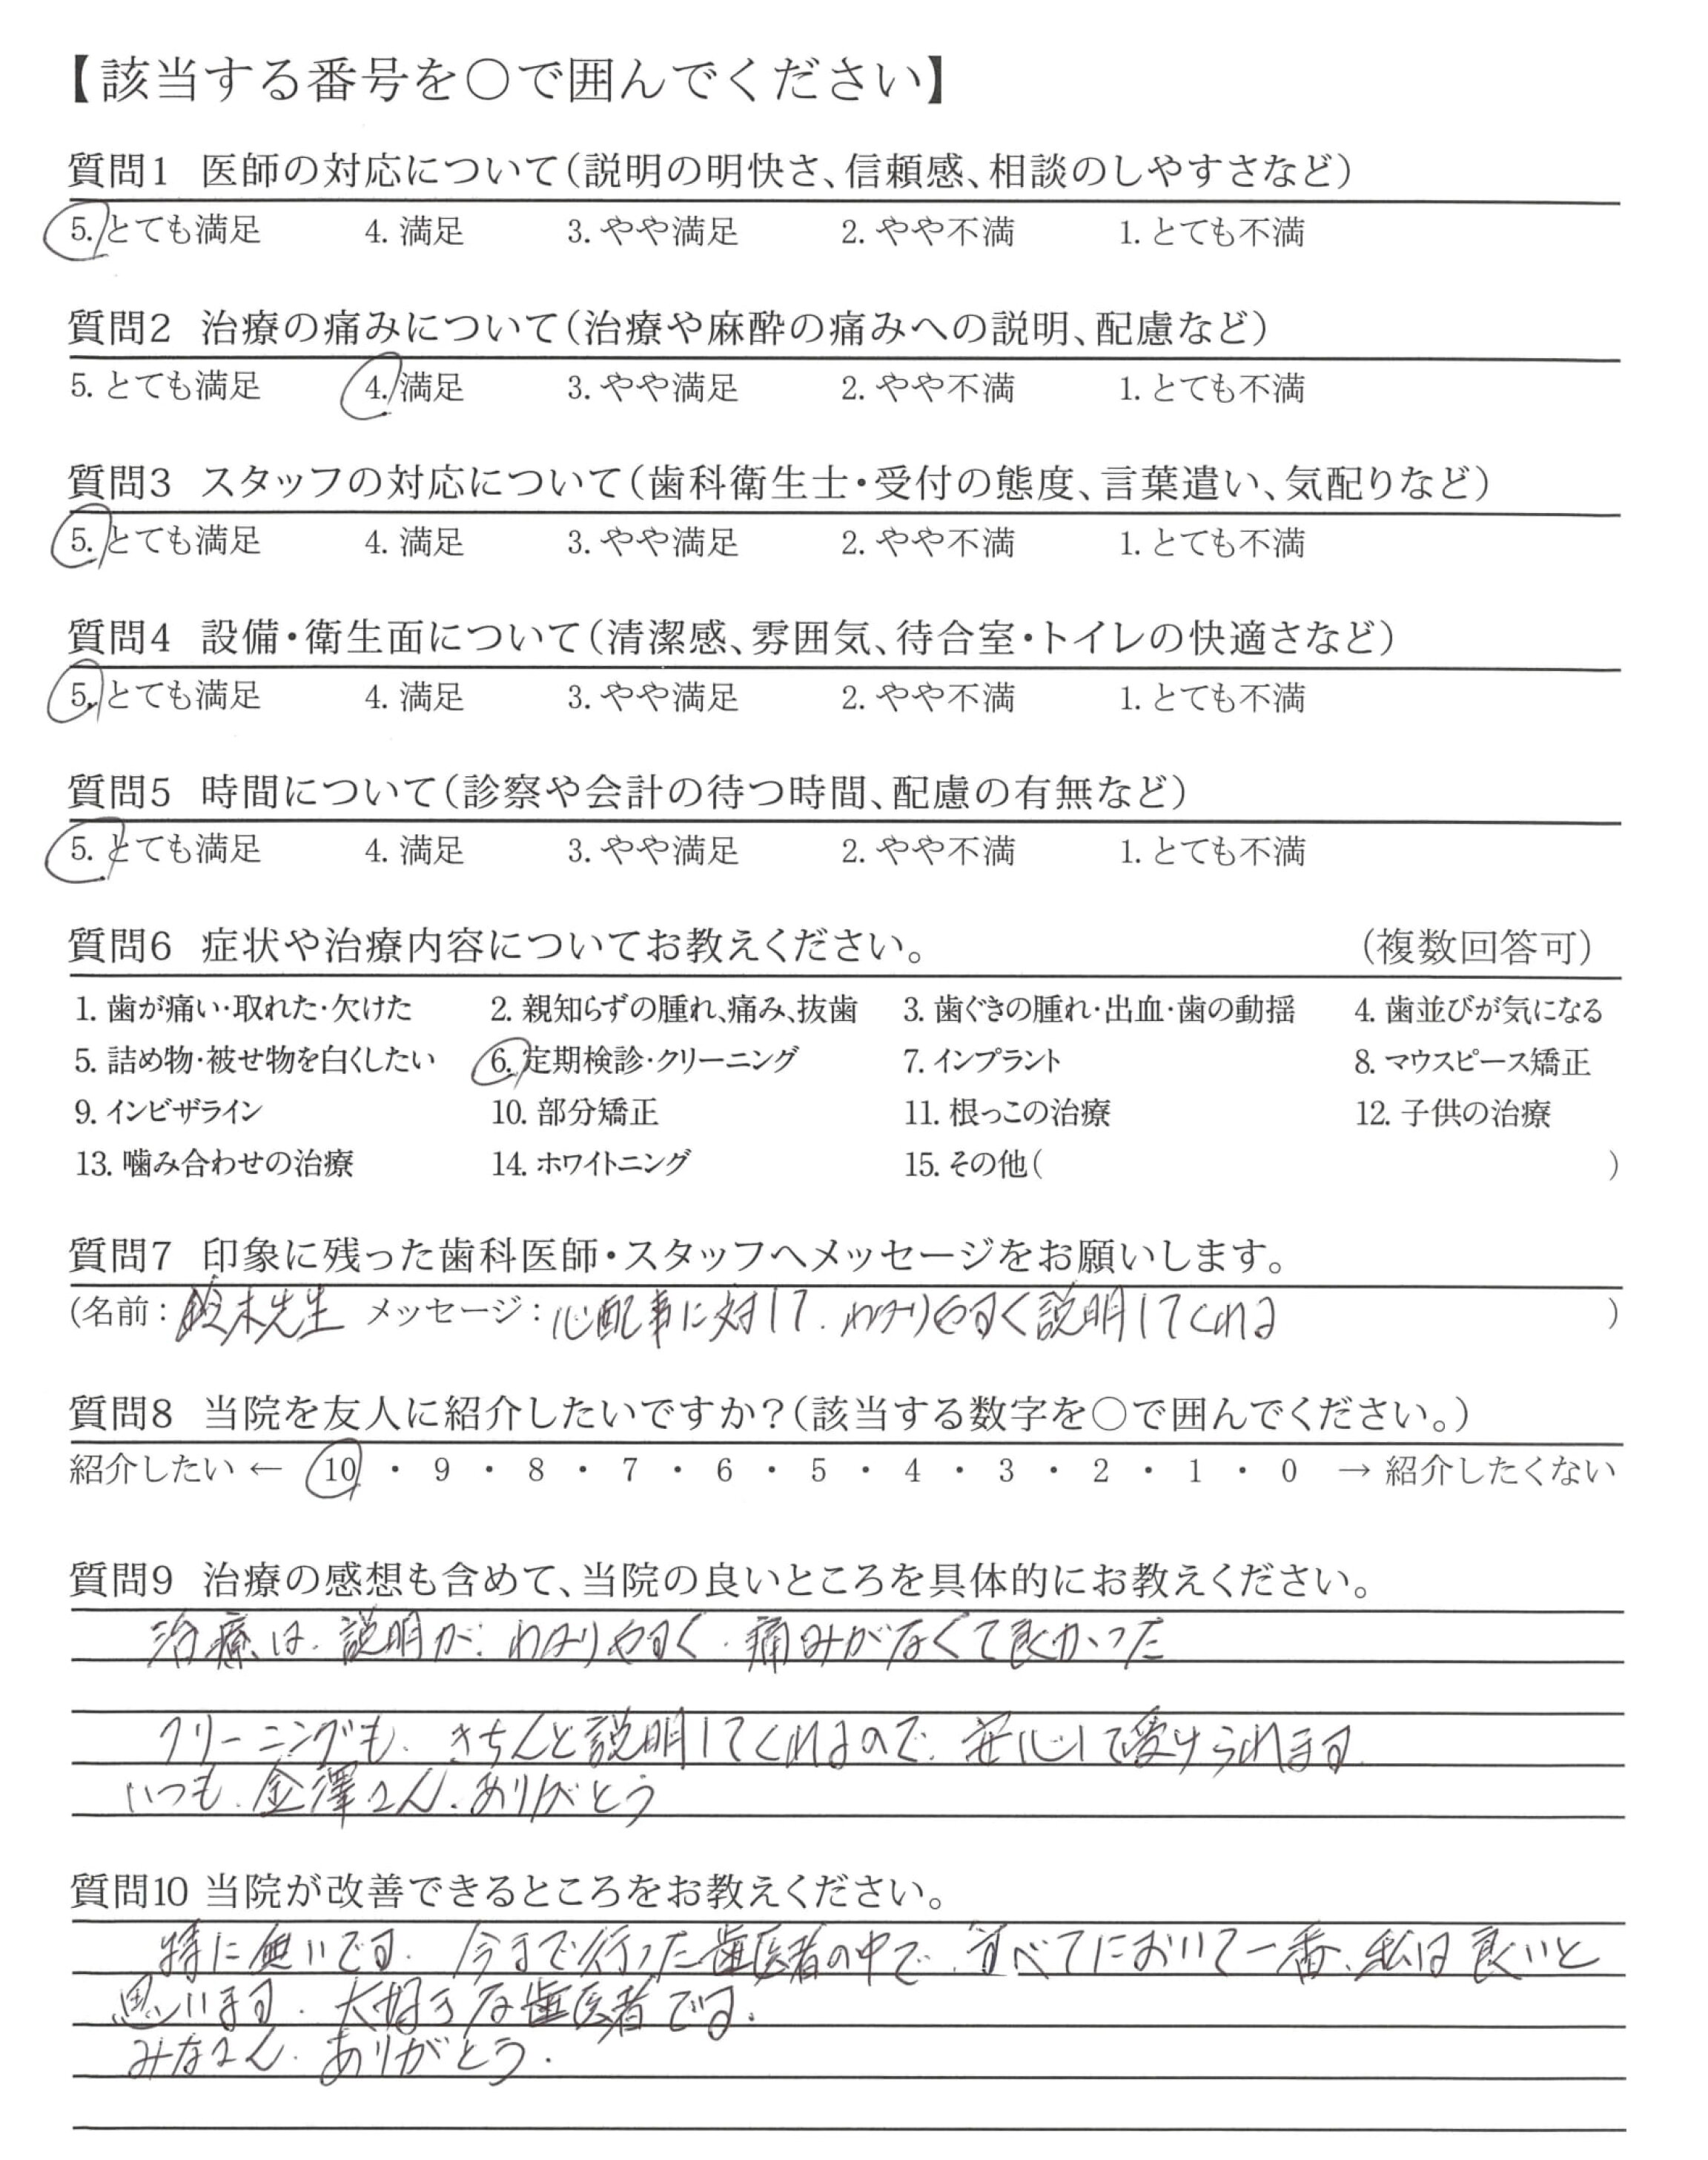 【該当する番号を○で囲んでください】
質問1 医師の対応について(説明の明快さ、信頼感、相談のしやすさなど)
5. とても満足 4. 満足 3. やや満足 2. やや不満 1. とても不満
質問2 治療の痛みについて(治療や麻酔の痛みへの説明、配慮など)
5. とても満足 4. 満足 3. やや満足 2. やや不満 1. とても不満
質問3 スタッフの対応について(歯科衛生士・受付の態度、言葉遣い、気配りなど)
5. とても満足 4. 満足 3. やや満足 2. やや不満 1. とても不満
質問4 設備・衛生面について(清潔感、雰囲気、待合室・トイレの快適さなど)
5. とても満足 4. 満足 3. やや満足 2. やや不満 1. とても不満
質問5 時間について(診察や会計の待つ時間、配慮の有無など)
5. とても満足 4. 満足 3. やや満足 2. やや不満 1. とても不満
質問6 症状や治療内容についてお教えください。 (複数回答可)
1. 歯が痛い・取れた・欠けた 2. 親知らずの腫れ、痛み、抜歯 3. 歯ぐきの腫れ・出血・歯の動揺 4. 歯並びが気になる
5. 詰め物・被せ物を白くしたい 6. 定期検診・クリーニング 7. インプラント 8. マウスピース矯正
9. インビザライン 10. 部分矯正 11. 根っこの治療 12. 子供の治療
13. 噛み合わせの治療 14. ホワイトニング 15. その他( )
質問7 印象に残った歯科医師・スタッフへメッセージをお願いします。
(名前:鈴木先生 メッセージ:心配事に対して、わかりやすく説明してくれる )
質問8 当院を友人に紹介したいですか?(該当する数字を○で囲んでください。)
紹介したい ← 10 ・ 9 ・ 8 ・ 7 ・ 6 ・ 5 ・ 4 ・ 3 ・ 2 ・ 1 ・ 0 → 紹介したくない
質問9 治療の感想も含めて、当院の良いところを具体的にお教えください。
治療は、説明が、わかりやすく、痛みがなくて良かった
クリーニングも、きちんと説明してくれるので、安心して受けられます
いつも、金澤さん、ありがとう
質問10 当院が改善できるところをお教えください。
特に無いです。今まで行った歯医者の中で、すべてにおいて一番、私は良いと
思います。大好きな歯医者です。
みなさん、ありがとう。